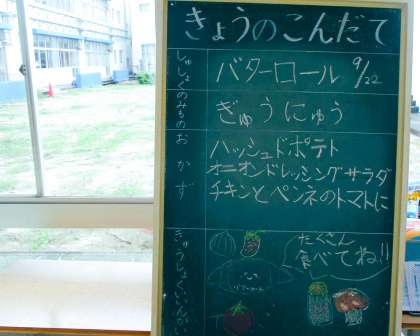 きょうのこんだて
しゅしょく
バターロール 9/22
のみもの
ぎゅうにゅう
おかず
ハッシュドポテト
オニオンドレッシングサラダ
チキンとペンネのトマトに
きゅうしょくいいんかい
たくさん
食べてね!!